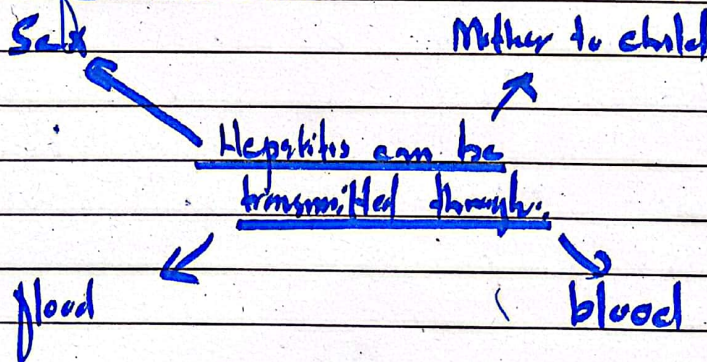 Sex
Mother to child
Hepatitis can be
transmitted through.
flood
blood